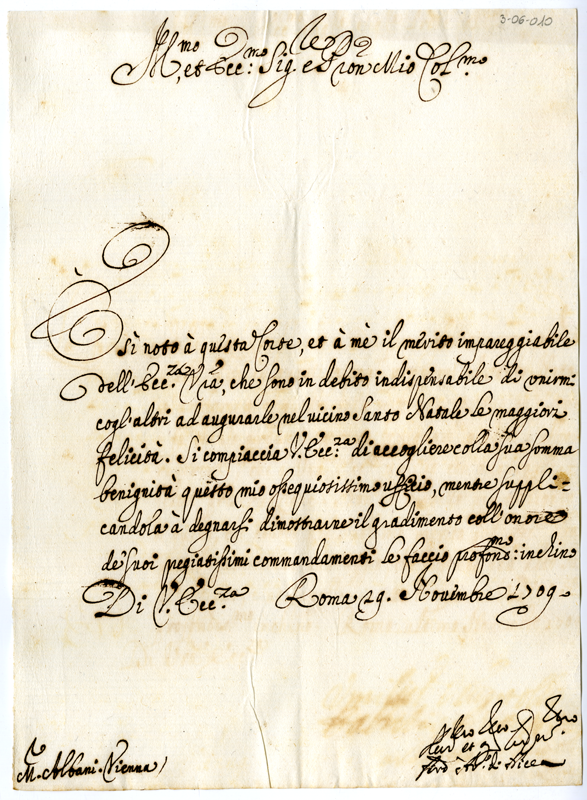 3-06-010
Ill.mo et Ecc.mo Sig.re e Pron Mio Col.mo
È sì noto à questa Corte, et à mè il merito impareggiabile
dell'Ecc.za Vrã, che sono in debito indispensabile di unirmi
cogl'altri ad augurarle nel vicino Santo Natale le maggiori
felicità. Si compiaccia V. Ecc.za di accogliere colla sua somma
benignità questo mio ossequiosissimo uffizio, mentre suppli=
candola à degnarsi dimostrarne il gradimento coll'onore
de' suoi pregiatissimi commandamenti le faccio profond.mo inchino
Di V. Ecc.za Roma 29. Novembre 1709.
M. Albani. Vienna